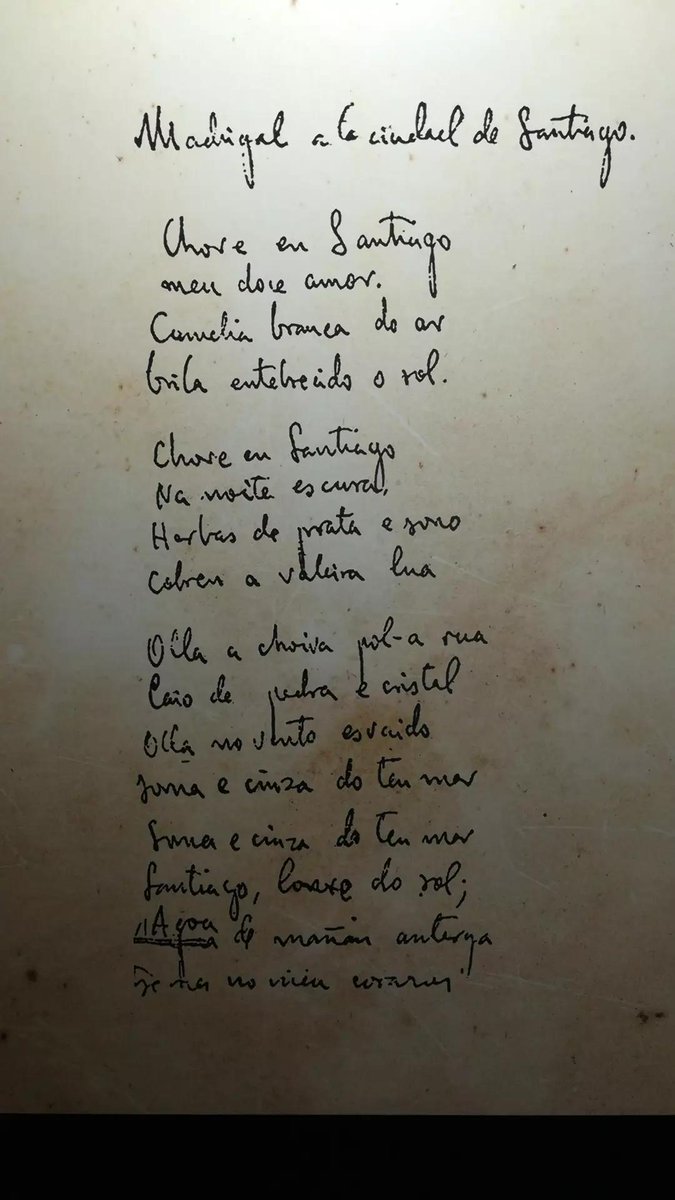 Madrigal a la ciudad de Santiago.
Chove en Santiago
meu doce amor.
Camelia branca do ar
brila entebrecido o sol.
Chove en Santiago
Na noite escura.
Herbas de prata e sono
cobren a valeira lua
Olla a choiva pol-a rua
laio de pedra e cristal
Olla no vento esvaido
soma e cinza do teu mar
Soma e cinza do teu mar
Santiago, lonxe do sol;
Agoa de mañán anterga
trema no meu corazon